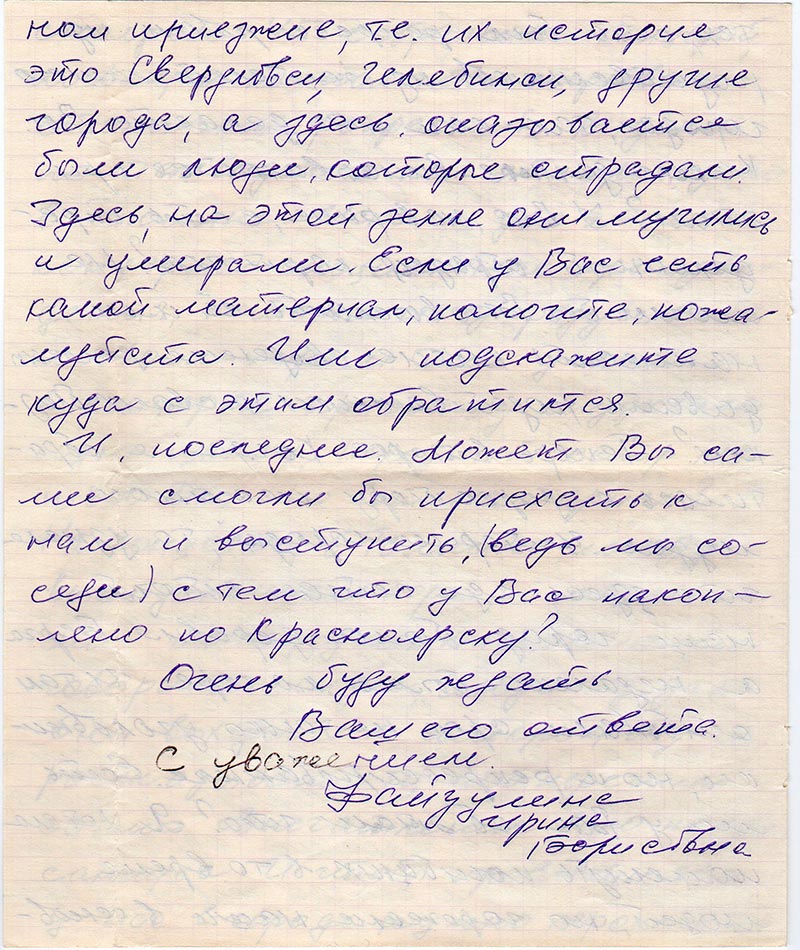 ном приезжие, т.е. их история
это Свердловск, Челябинск, другие
города, а здесь, оказывается
были люди, которые страдали.
Здесь, на этой земле они мучились
и умирали. Если у Вас есть
какой материал, помогите, пожа-
луйста. Или подскажите
куда с этим обратится.
И, последнее. Может Вы са-
ми смогли бы приехать к
нам и выступить, (ведь мы со-
седи) с тем что у Вас накоп-
лено по Красноярску?
Очень буду ждать
Вашего ответа.
С уважением.
Файзулина
Ирина
Борисовна